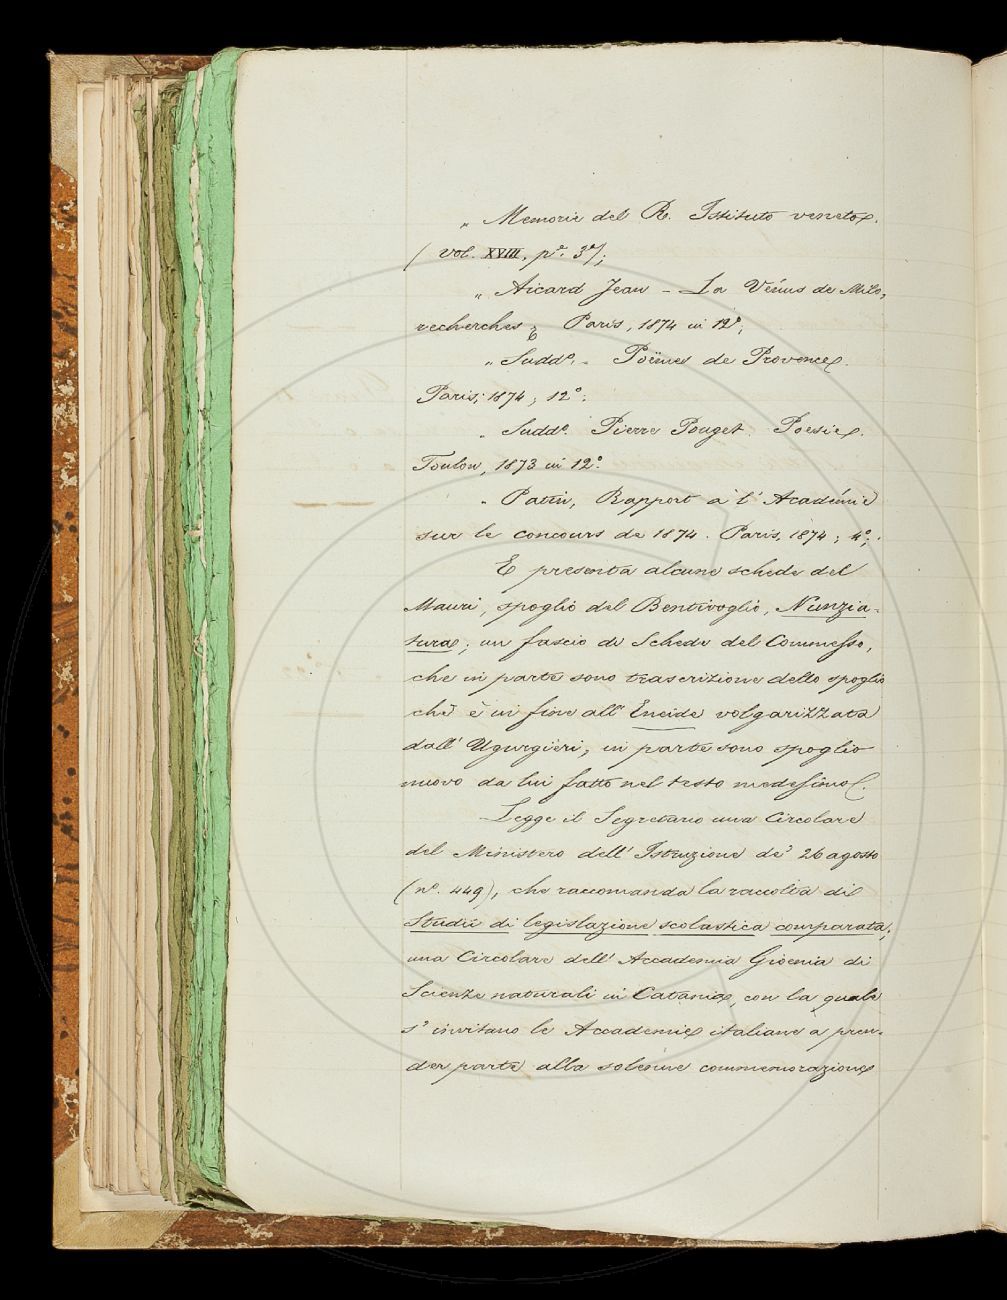 „ Memorie del R. Istituto veneto.
(vol. XVIII, pe. 3a);
„ Aicard Jean – La Vénus de Milo,
recherches & Paris, 1874 in 12°;
„ Suddo. – Poëmes de Provence.
Paris, 1874, 12°;
„ Suddo. Pierre Pouget. Poesie.
Toulon, 1873 in 12°.
„ Patin, Rapport à l'Académie
sur le concours de 1874. Paris, 1874, 4°;
E presenta alcune schede del
Mauri, spoglio del Bentivoglio, Nunzia-
tura; un fascio di Schede del Commesso,
che in parte sono trascrizione dello spoglio
che è in fine all'Eneide volgarizzata
dall'Ugurgieri, in parte sono spoglio
nuovo da lui fatto nel testo medesimo.
Legge il Segretario una Circolare
del Ministero dell'Istruzione de' 26 agosto
(n°. 449), che raccomanda la raccolta di
Studii di legislazione scolastica comparata;
una Circolare dell'Accademia Gioenia di
Scienze naturali in Catania, con la quale
s'invitano le Accademie italiane a pren-
der parte alla solenne commemorazione